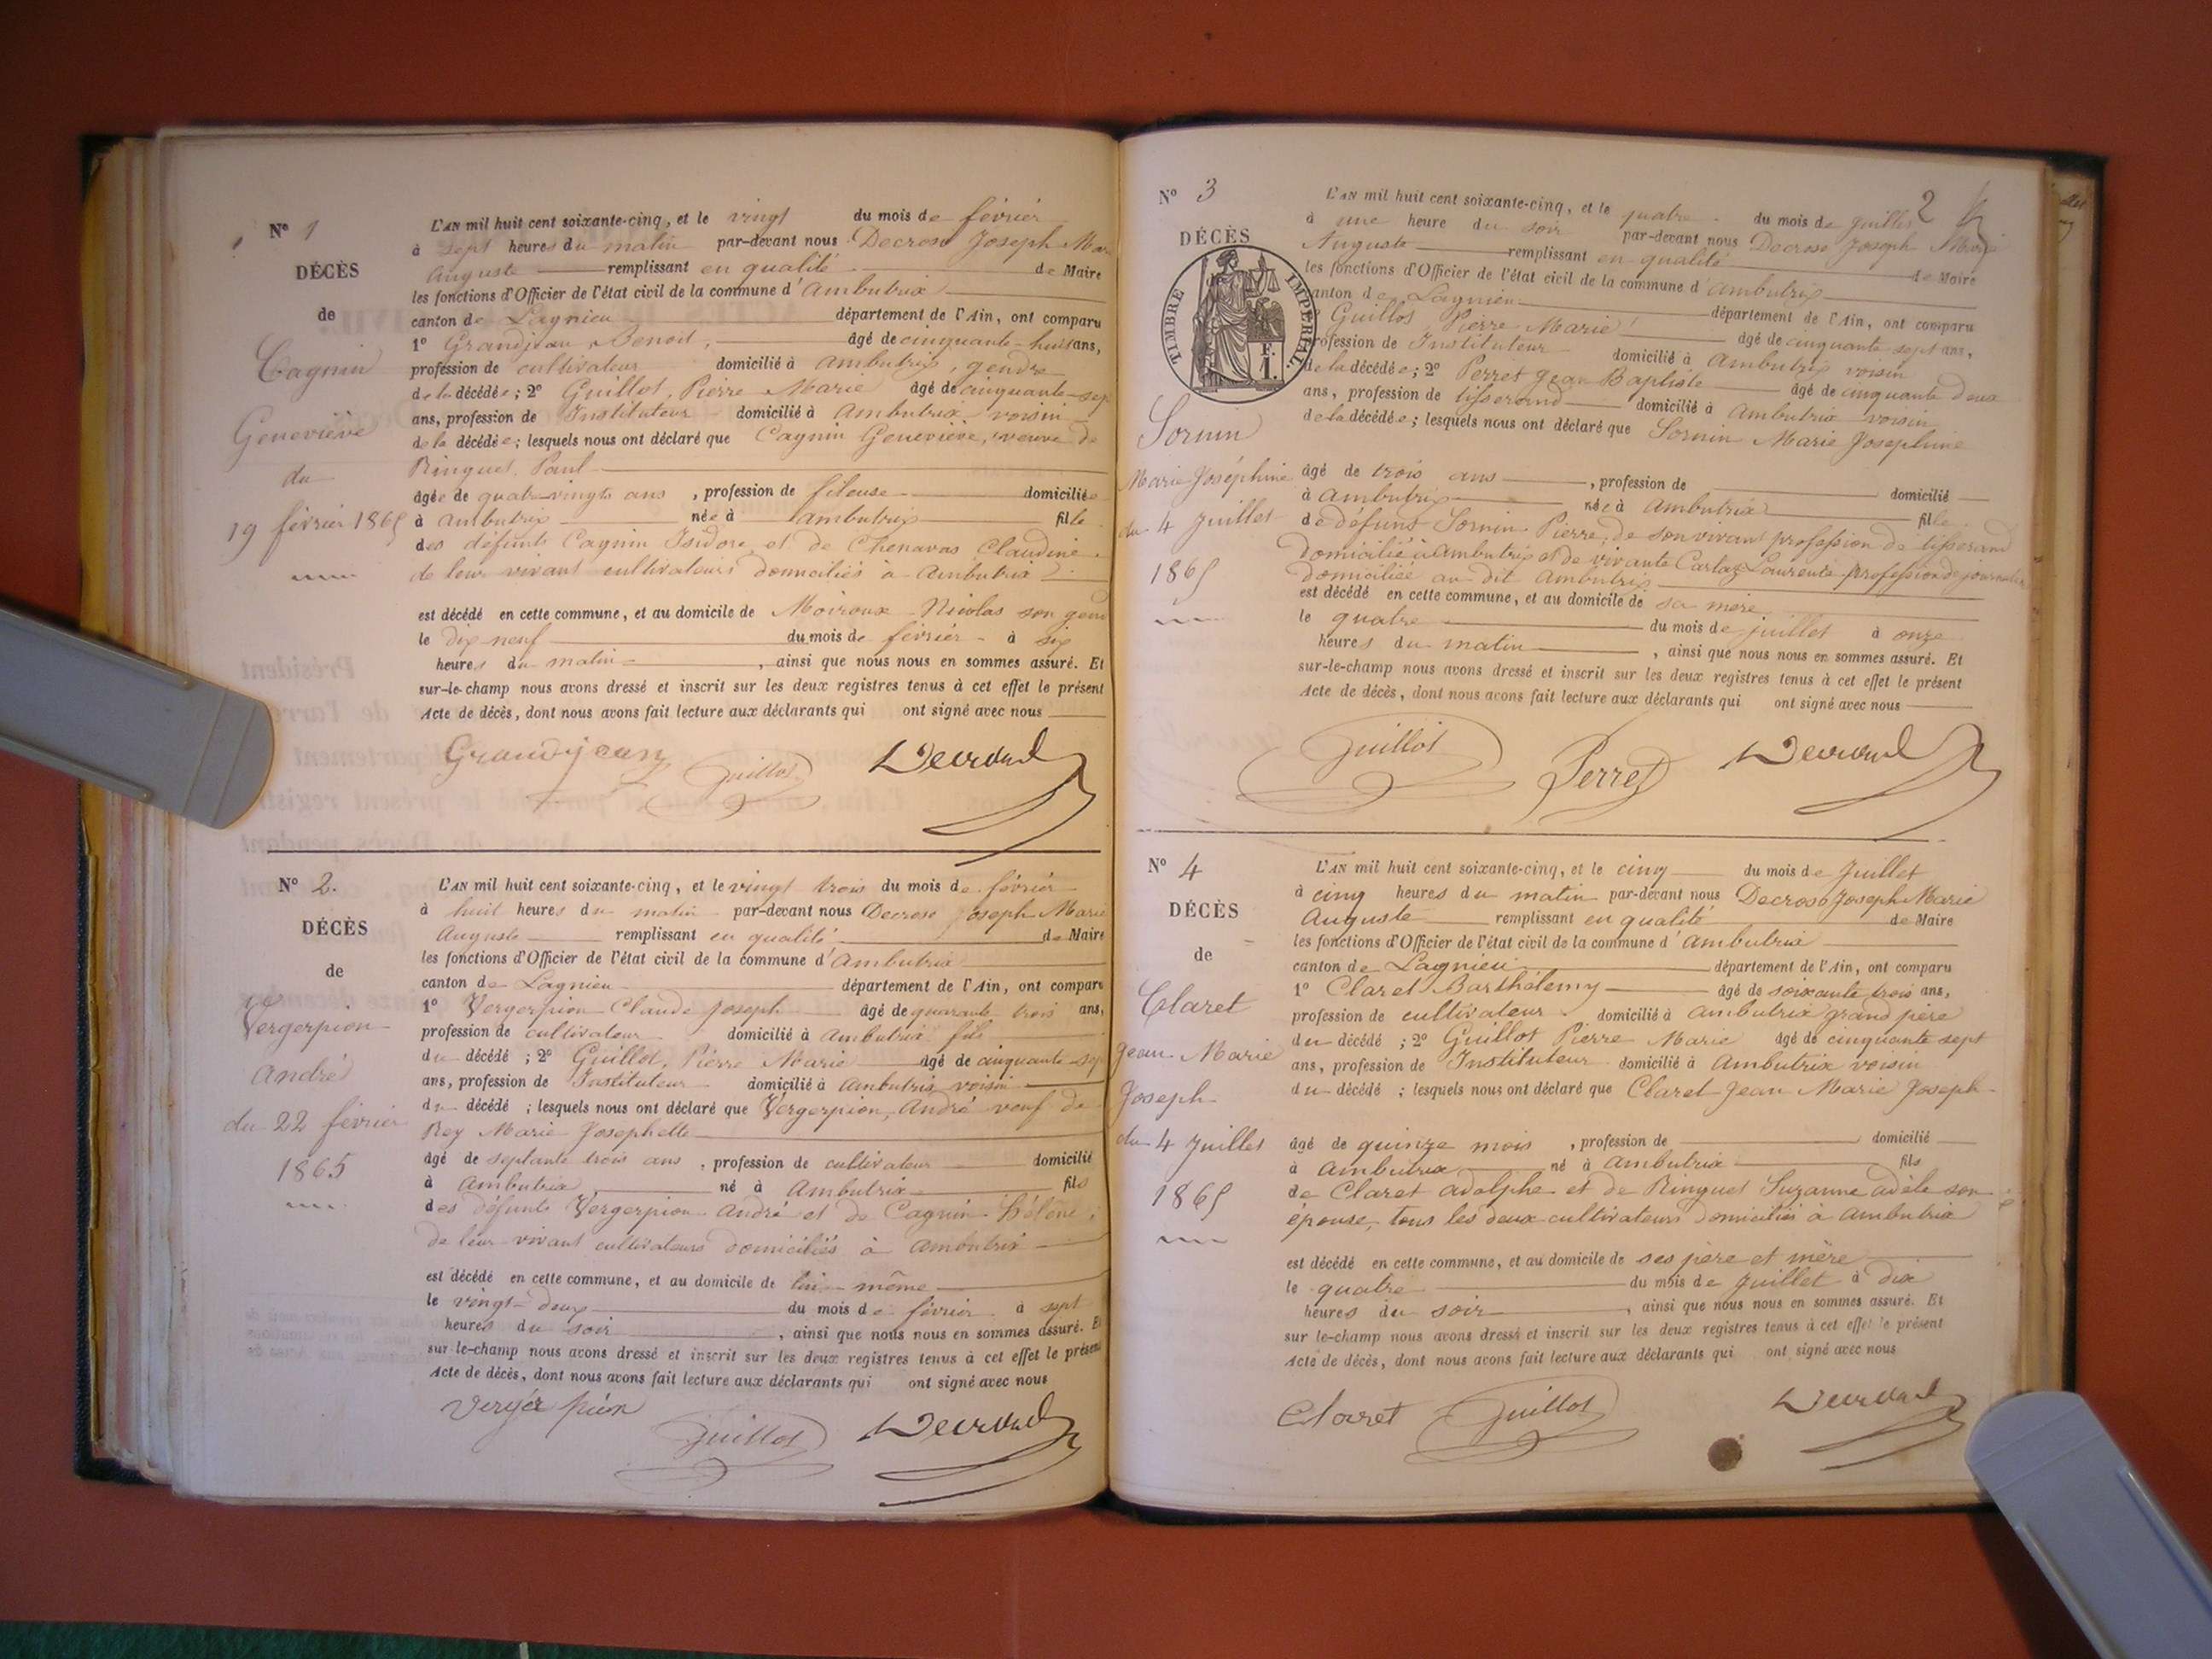 N° 1
DÉCÈS
de
Cagnin
Geneviève
du
19 février 1865
L'AN mil huit cent soixante-cinq, et le vingt du mois de février
à sept heures du matin par-devant nous Decroso Joseph Mar
Auguste remplissant en qualité de Maire
les fonctions d'Officier de l'état civil de la commune d'Ambutrix
canton de Lagnieu département de l'Ain, ont comparu
1° Grandjean Benoit, âgé de cinquante-huit ans,
profession de cultivateur domicilié à Ambutrix, gendre
de la décédée; 2° Guillot, Pierre Marie âgé de cinquante-sep
ans, profession de Instituteur domicilié à Ambutrix voisin
de la décédée; lesquels nous ont déclaré que Cagnin Geneviève, veuve de
Ringuet Paul
âgée de quatre-vingts ans, profession de fileuse domiciliée
à Ambutrix née à Ambutrix fille
des défunts Cagnin Isidore et de Chenavas Claudine
de leur vivant cultivateurs domiciliés à Ambutrix
est décédé en cette commune, et au domicile de Moiroux Nicolas son gend
le dix neuf du mois de février à six
heures du matin, ainsi que nous nous en sommes assuré. Et
sur-le-champ nous avons dressé et inscrit sur les deux registres tenus à cet effet le présent
Acte de décès, dont nous avons fait lecture aux déclarants qui ont signé avec nous
Grandjean Guillot Decroso
N° 2.
DÉCÈS
de
Vergerpion
André
du 22 février
1865
L'AN mil huit cent soixante-cinq, et le vingt trois du mois de février
à huit heures du matin par-devant nous Decroso Joseph Marie
Auguste remplissant en qualité de Maire
les fonctions d'Officier de l'état civil de la commune d'Ambutrix
canton de Lagnieu département de l'Ain, ont comparu
1° Vergerpion Claude Joseph âgé de quarante trois ans,
profession de cultivateur domicilié à Ambutrix fils
du décédé; 2° Guillot, Pierre Marie âgé de cinquante-sep
ans, profession de Instituteur domicilié à Ambutrix voisin
du décédé; lesquels nous ont déclaré que Vergerpion, André veuf de
Rey Marie Josephette
âgé de septante trois ans, profession de cultivateur domicilié
à Ambutrix né à Ambutrix fils
des défunts Vergerpion André et de Cagnin Hélène,
de leur vivant cultivateurs domiciliés à Ambutrix
est décédé en cette commune, et au domicile de lui-même
le vingt-deux du mois de février à sept
heures du soir, ainsi que nous nous en sommes assuré. Et
sur-le-champ nous avons dressé et inscrit sur les deux registres tenus à cet effet le présen
Acte de décès, dont nous avons fait lecture aux déclarants qui ont signé avec nous
Vergér pion Guillot Decroso
2
N° 3
DÉCÈS
TIMBRE IMPÉRIAL
F.
1.
Sornin
Marie Joséphine
du 4 Juillet
1865
L'AN mil huit cent soixante-cinq, et le quatre du mois de Juillet
à une heure du soir par-devant nous Decroso Joseph Marie
Auguste remplissant en qualité de Maire
les fonctions d'Officier de l'état civil de la commune d'Ambutrix
canton de Lagnieu département de l'Ain, ont comparu
Guillot Pierre Marie âgé de cinquante sept ans,
profession de Instituteur domicilié à Ambutrix voisin
de la décédée; 2° Perret Jean Baptiste âgé de cinquante deux
ans, profession de tisserand domicilié à Ambutrix voisin
de la décédée; lesquels nous ont déclaré que Sornin Marie Josephine
âgé de trois ans, profession de domicilié
à Ambutrix née à Ambutrix fille
de défunt Sornin Pierre, de son vivant profession de tisserand
domicilié à Ambutrix et de vivante Cartaz Laurence profession de journalière
domiciliée au dit Ambutrix
est décédé en cette commune, et au domicile de sa mère
le quatre du mois de juillet à onze
heures du matin, ainsi que nous nous en sommes assuré. Et
sur-le-champ nous avons dressé et inscrit sur les deux registres tenus à cet effet le présent
Acte de décès, dont nous avons fait lecture aux déclarants qui ont signé avec nous
Guillot Perret Decroso
N° 4
DÉCÈS
de
Claret
Jean Marie
Joseph
du 4 Juillet
1865
L'AN mil huit cent soixante-cinq, et le cinq du mois de Juillet
à cinq heures du matin par-devant nous Decroso Joseph Marie
Auguste remplissant en qualité de Maire
les fonctions d'Officier de l'état civil de la commune d'Ambutrix
canton de Lagnieu département de l'Ain, ont comparu
1° Claret Barthélemy âgé de soixante trois ans,
profession de cultivateur domicilié à Ambutrix grand père
du décédé; 2° Guillot Pierre Marie âgé de cinquante sept
ans, profession de Instituteur domicilié à Ambutrix voisin
du décédé; lesquels nous ont déclaré que Claret Jean Marie Joseph
âgé de quinze mois, profession de domicilié
à Ambutrix né à Ambutrix fils
de Claret Adolphe et de Ringuet Suzanne Adèle son
épouse, tous les deux cultivateurs domiciliés à Ambutrix
est décédé en cette commune, et au domicile de ses père et mère
le quatre du mois de Juillet à dix
heures du soir, ainsi que nous nous en sommes assuré. Et
sur le-champ nous avons dressé et inscrit sur les deux registres tenus à cet effet le présent
Acte de décès, dont nous avons fait lecture aux déclarants qui ont signé avec nous
Claret Guillot Decroso